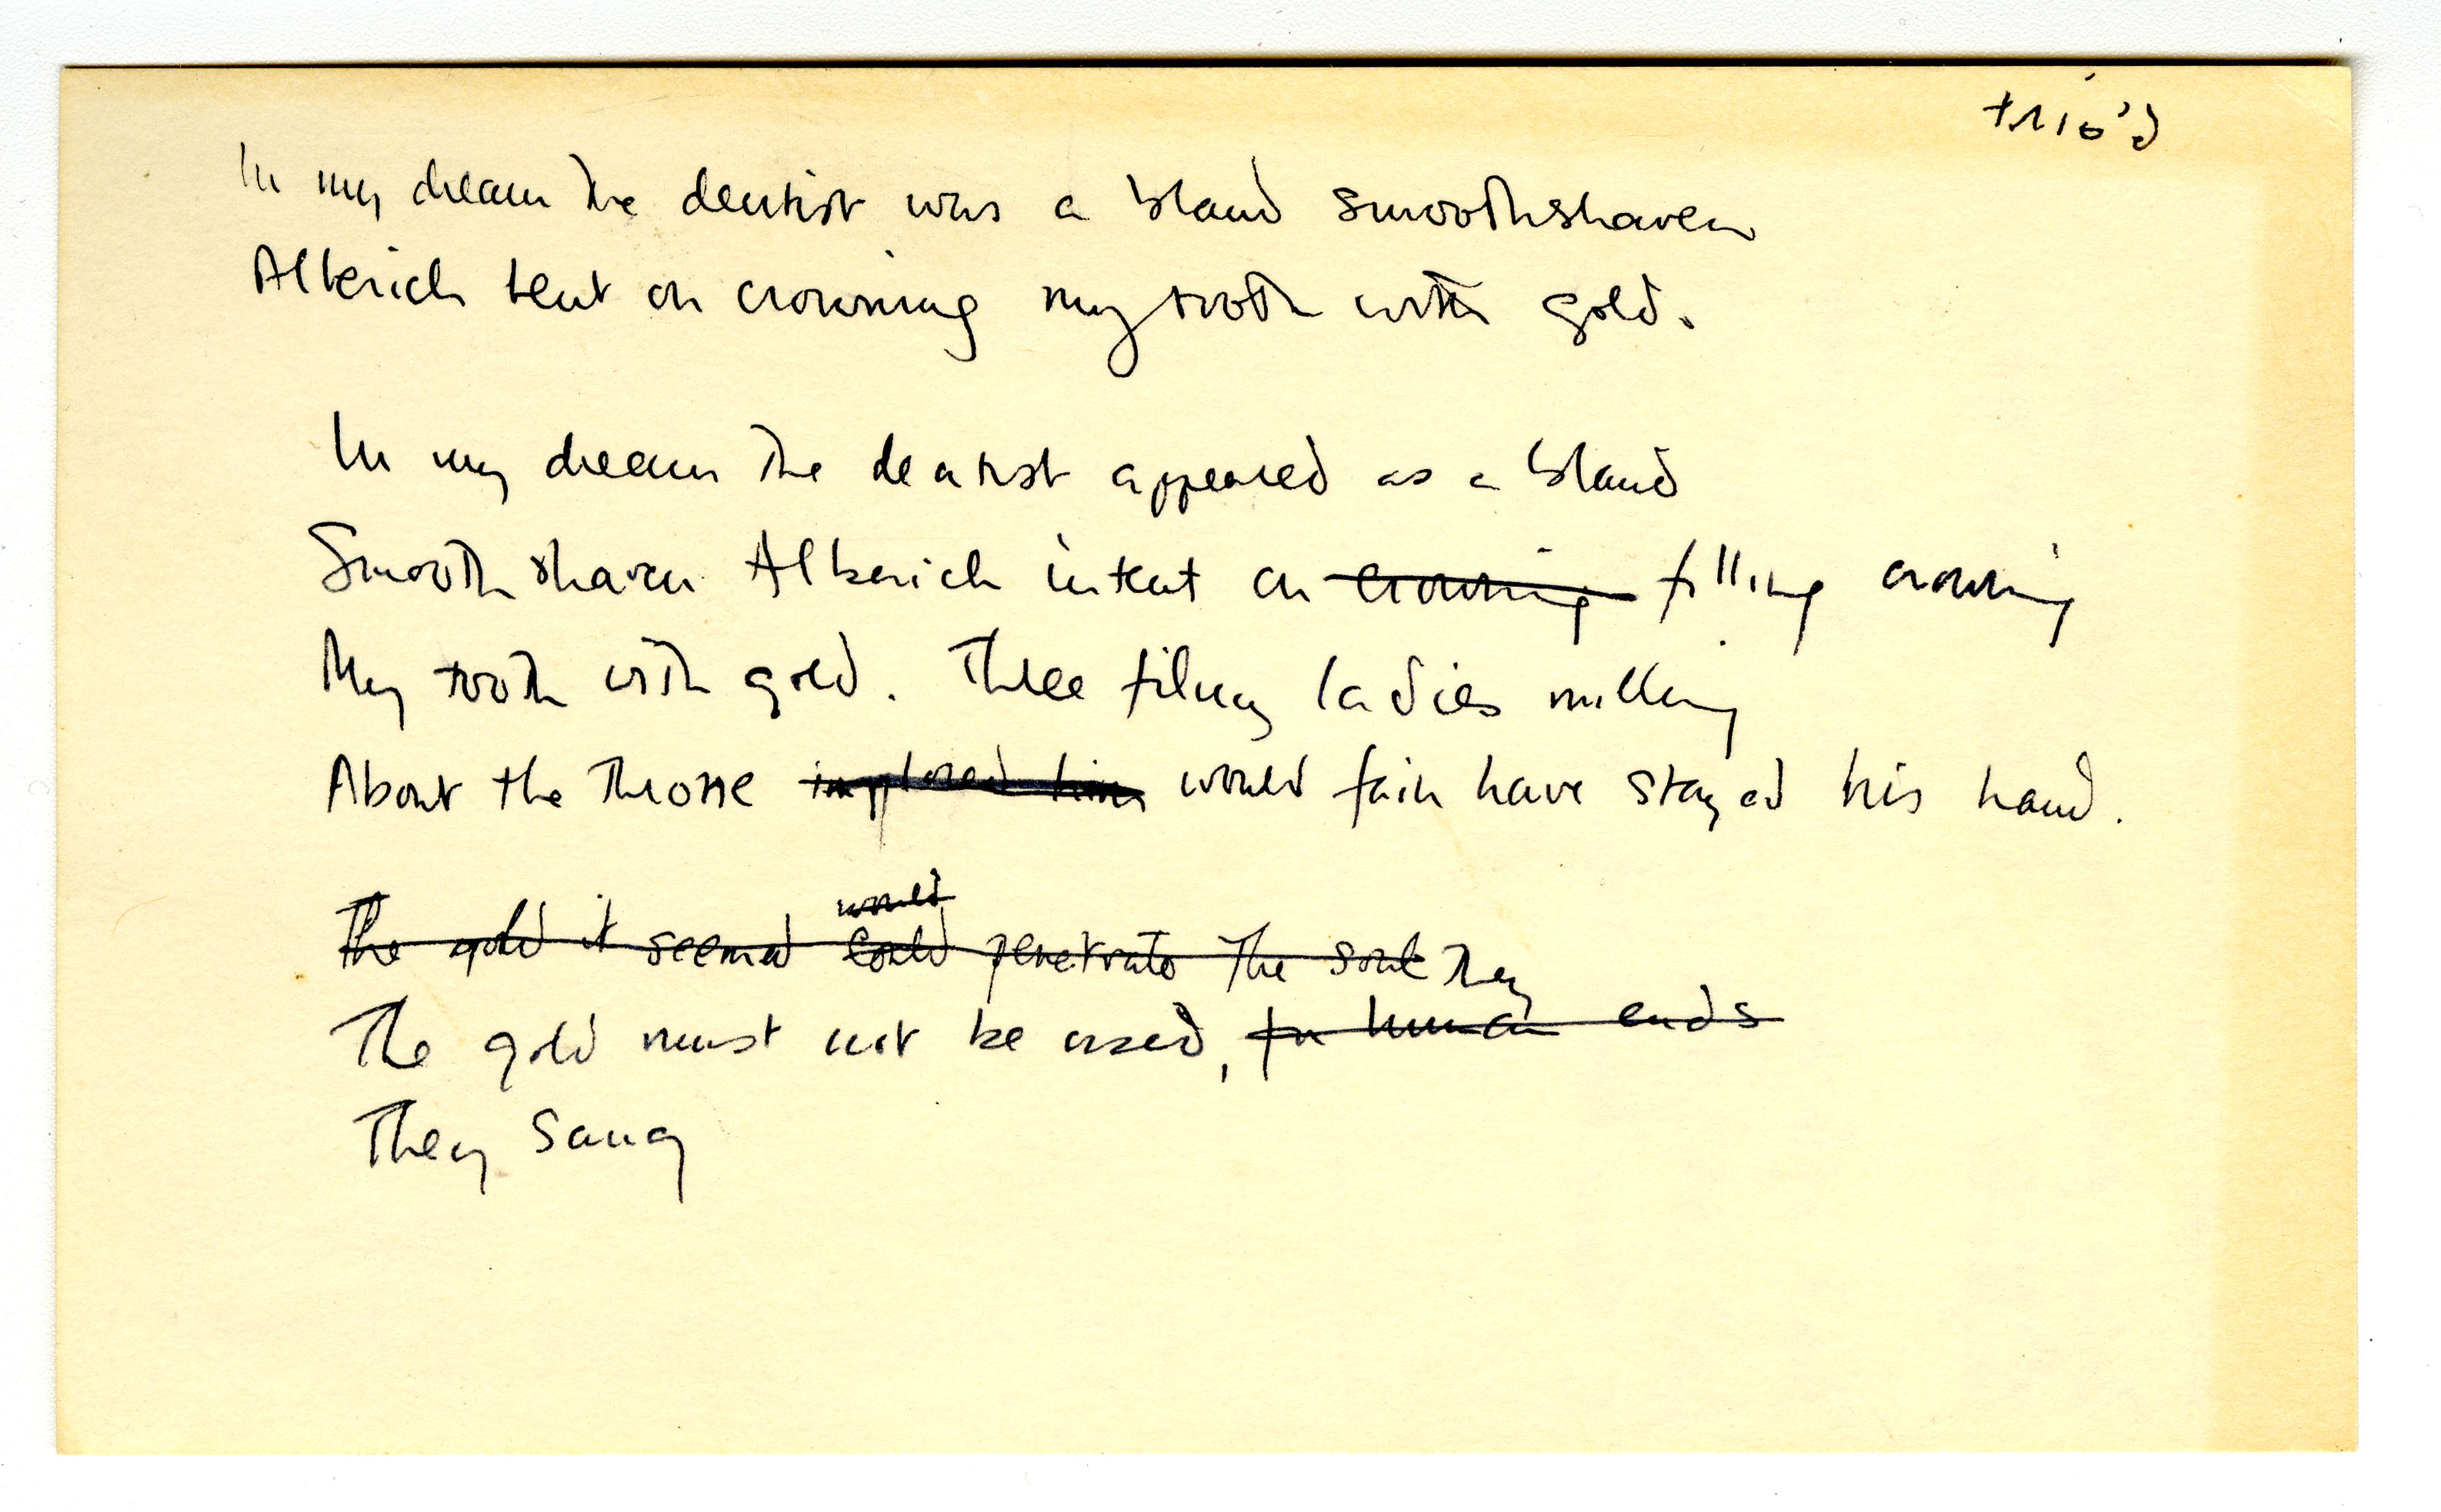 trio'd
In my dream the dentist was a bland smoothshaven
Alberich bent on crowning my tooth with gold.
In my dream the dentist appeared as a bland
Smooth shaven Alberich intent on crowning filling crowning
My tooth with gold. Three filmy ladies milling
About the throne implored him would fain have stayed his hand.
would
The gold it seemed could penetrate the soul They
The gold must not be used, for human ends
They sang